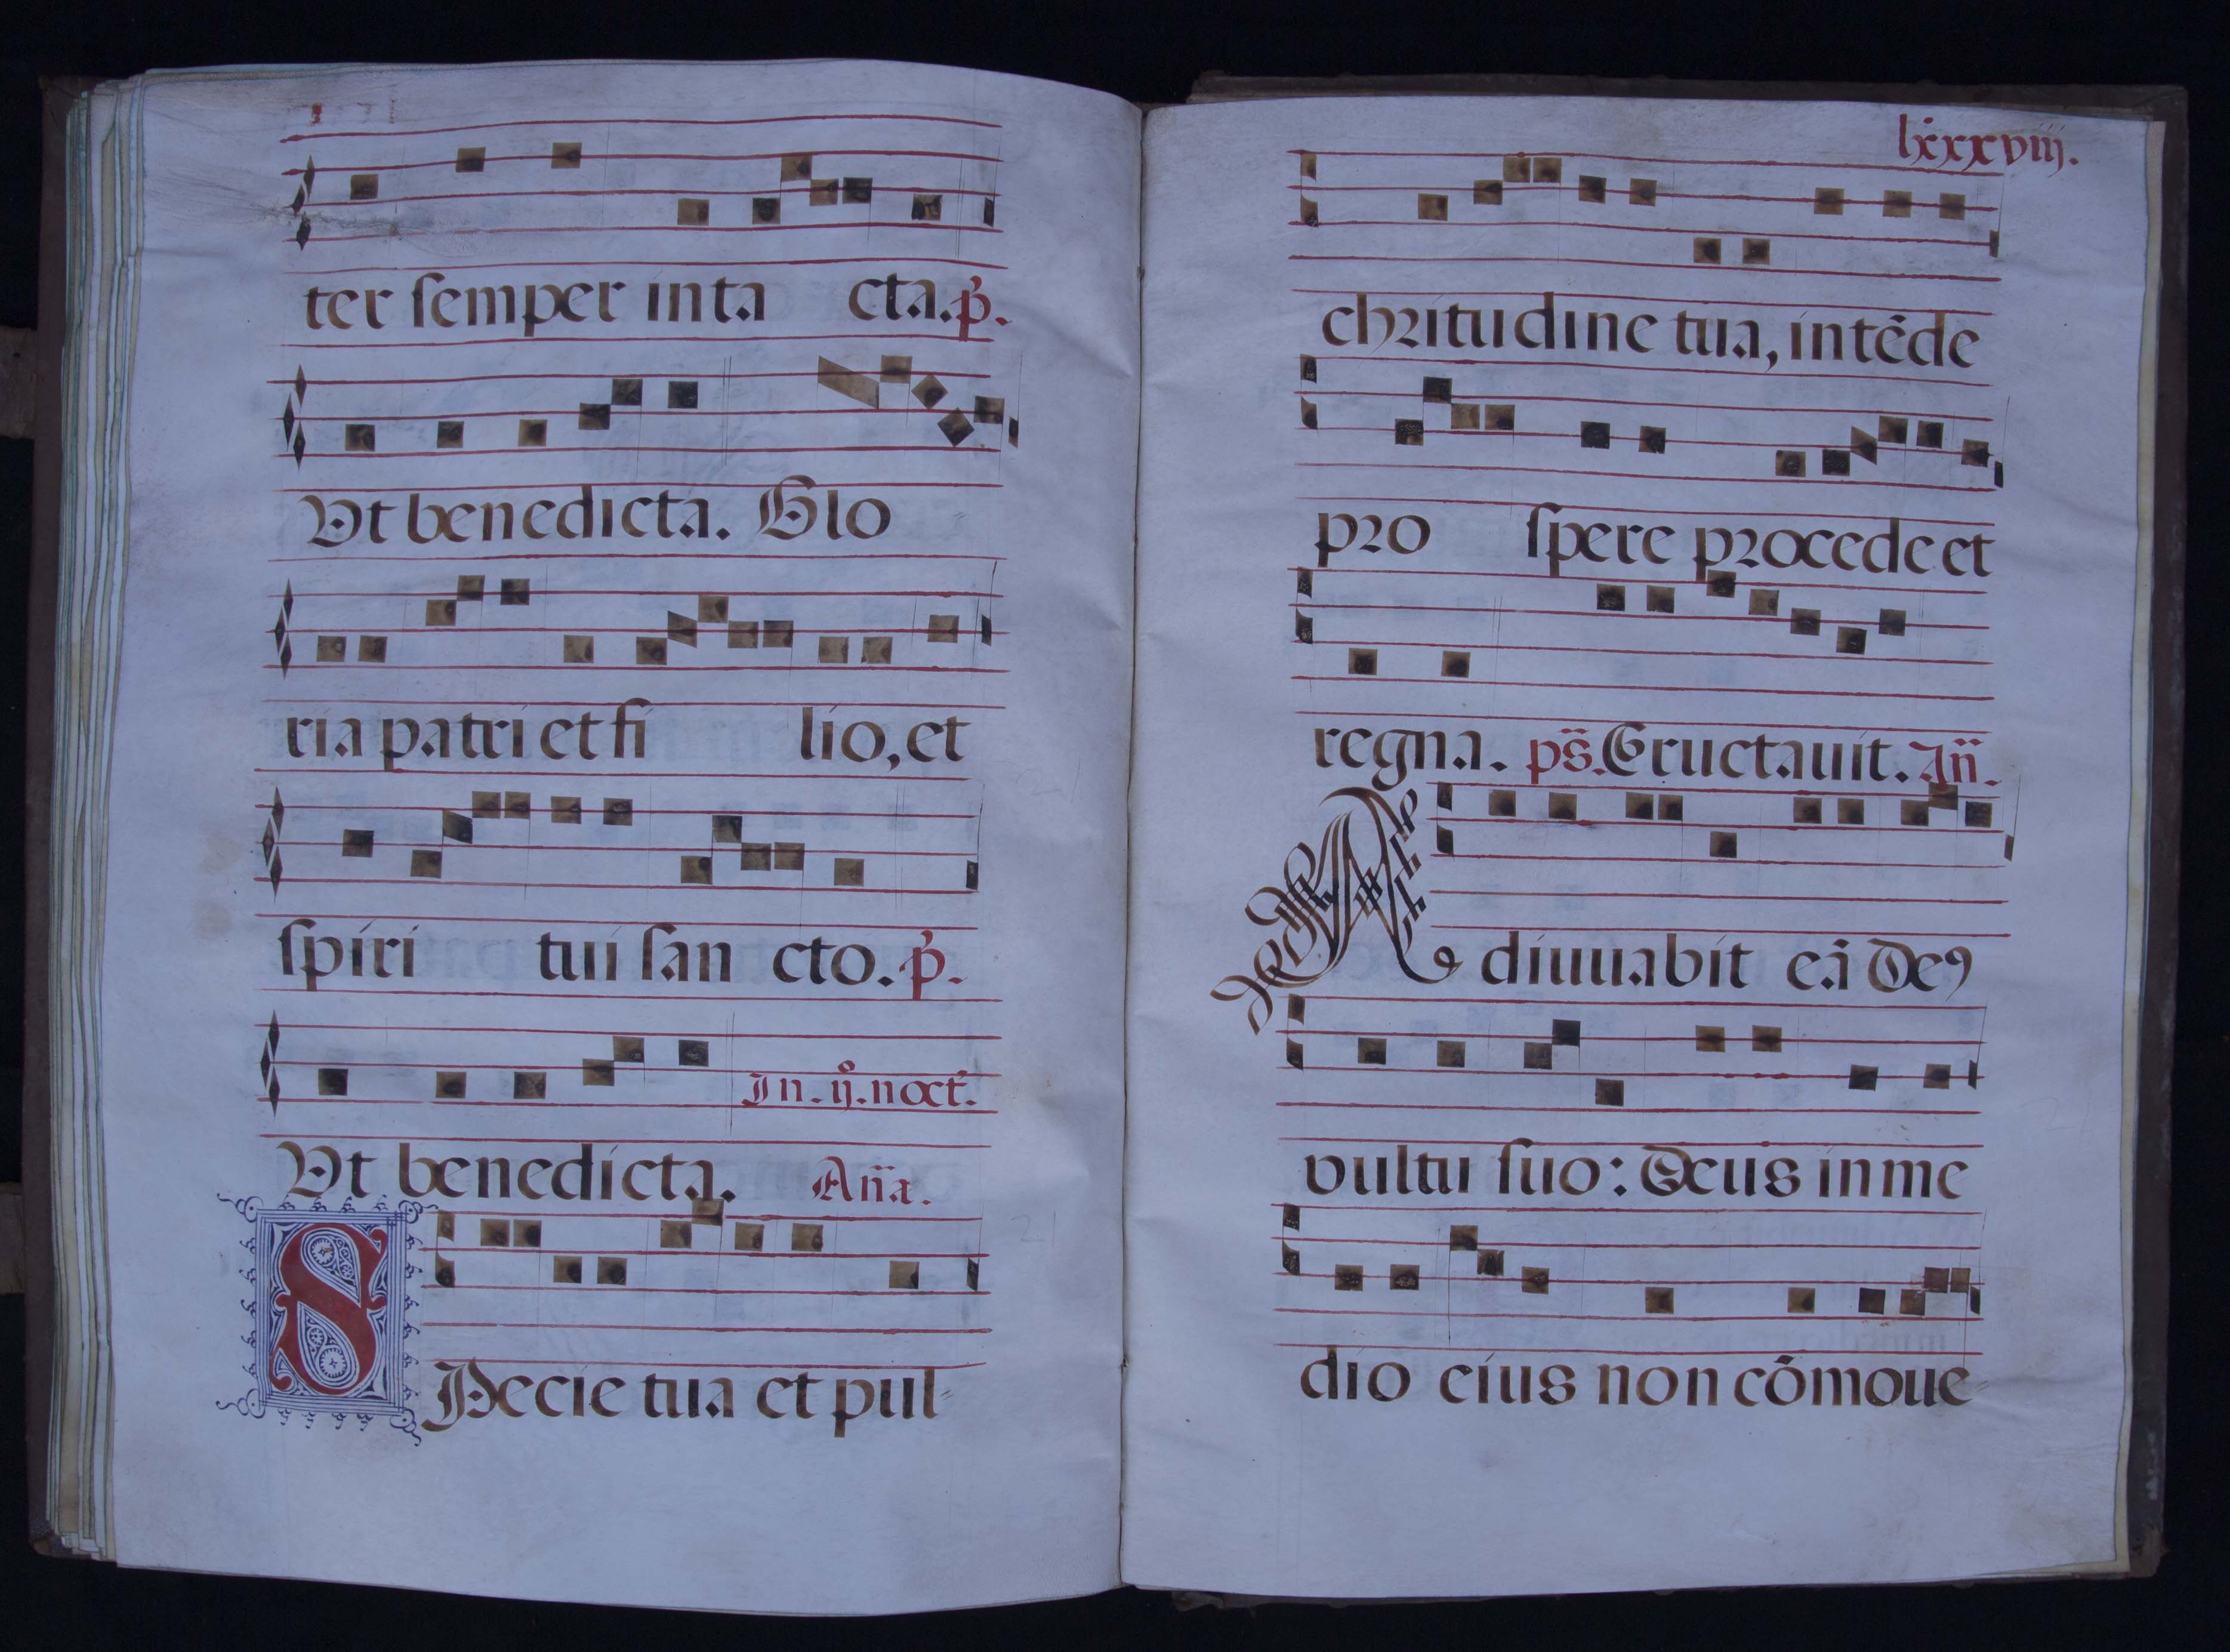 ter semper inta cta. p̄.
Ut benedicta. Glo
ria patri et fi lio, et
spiri tui san cto. p̄.
In. ij. noct.
Ut benedicta. Aña.
SPecie tua et pul-
lxxxviij.
chritudine tua, intēde
pro spere procede et
regna. ps. Eructauit. Añ.
Adiuuabit eā Deꝰ
vultu suo: Deus in me
dio eius non cōmoue-